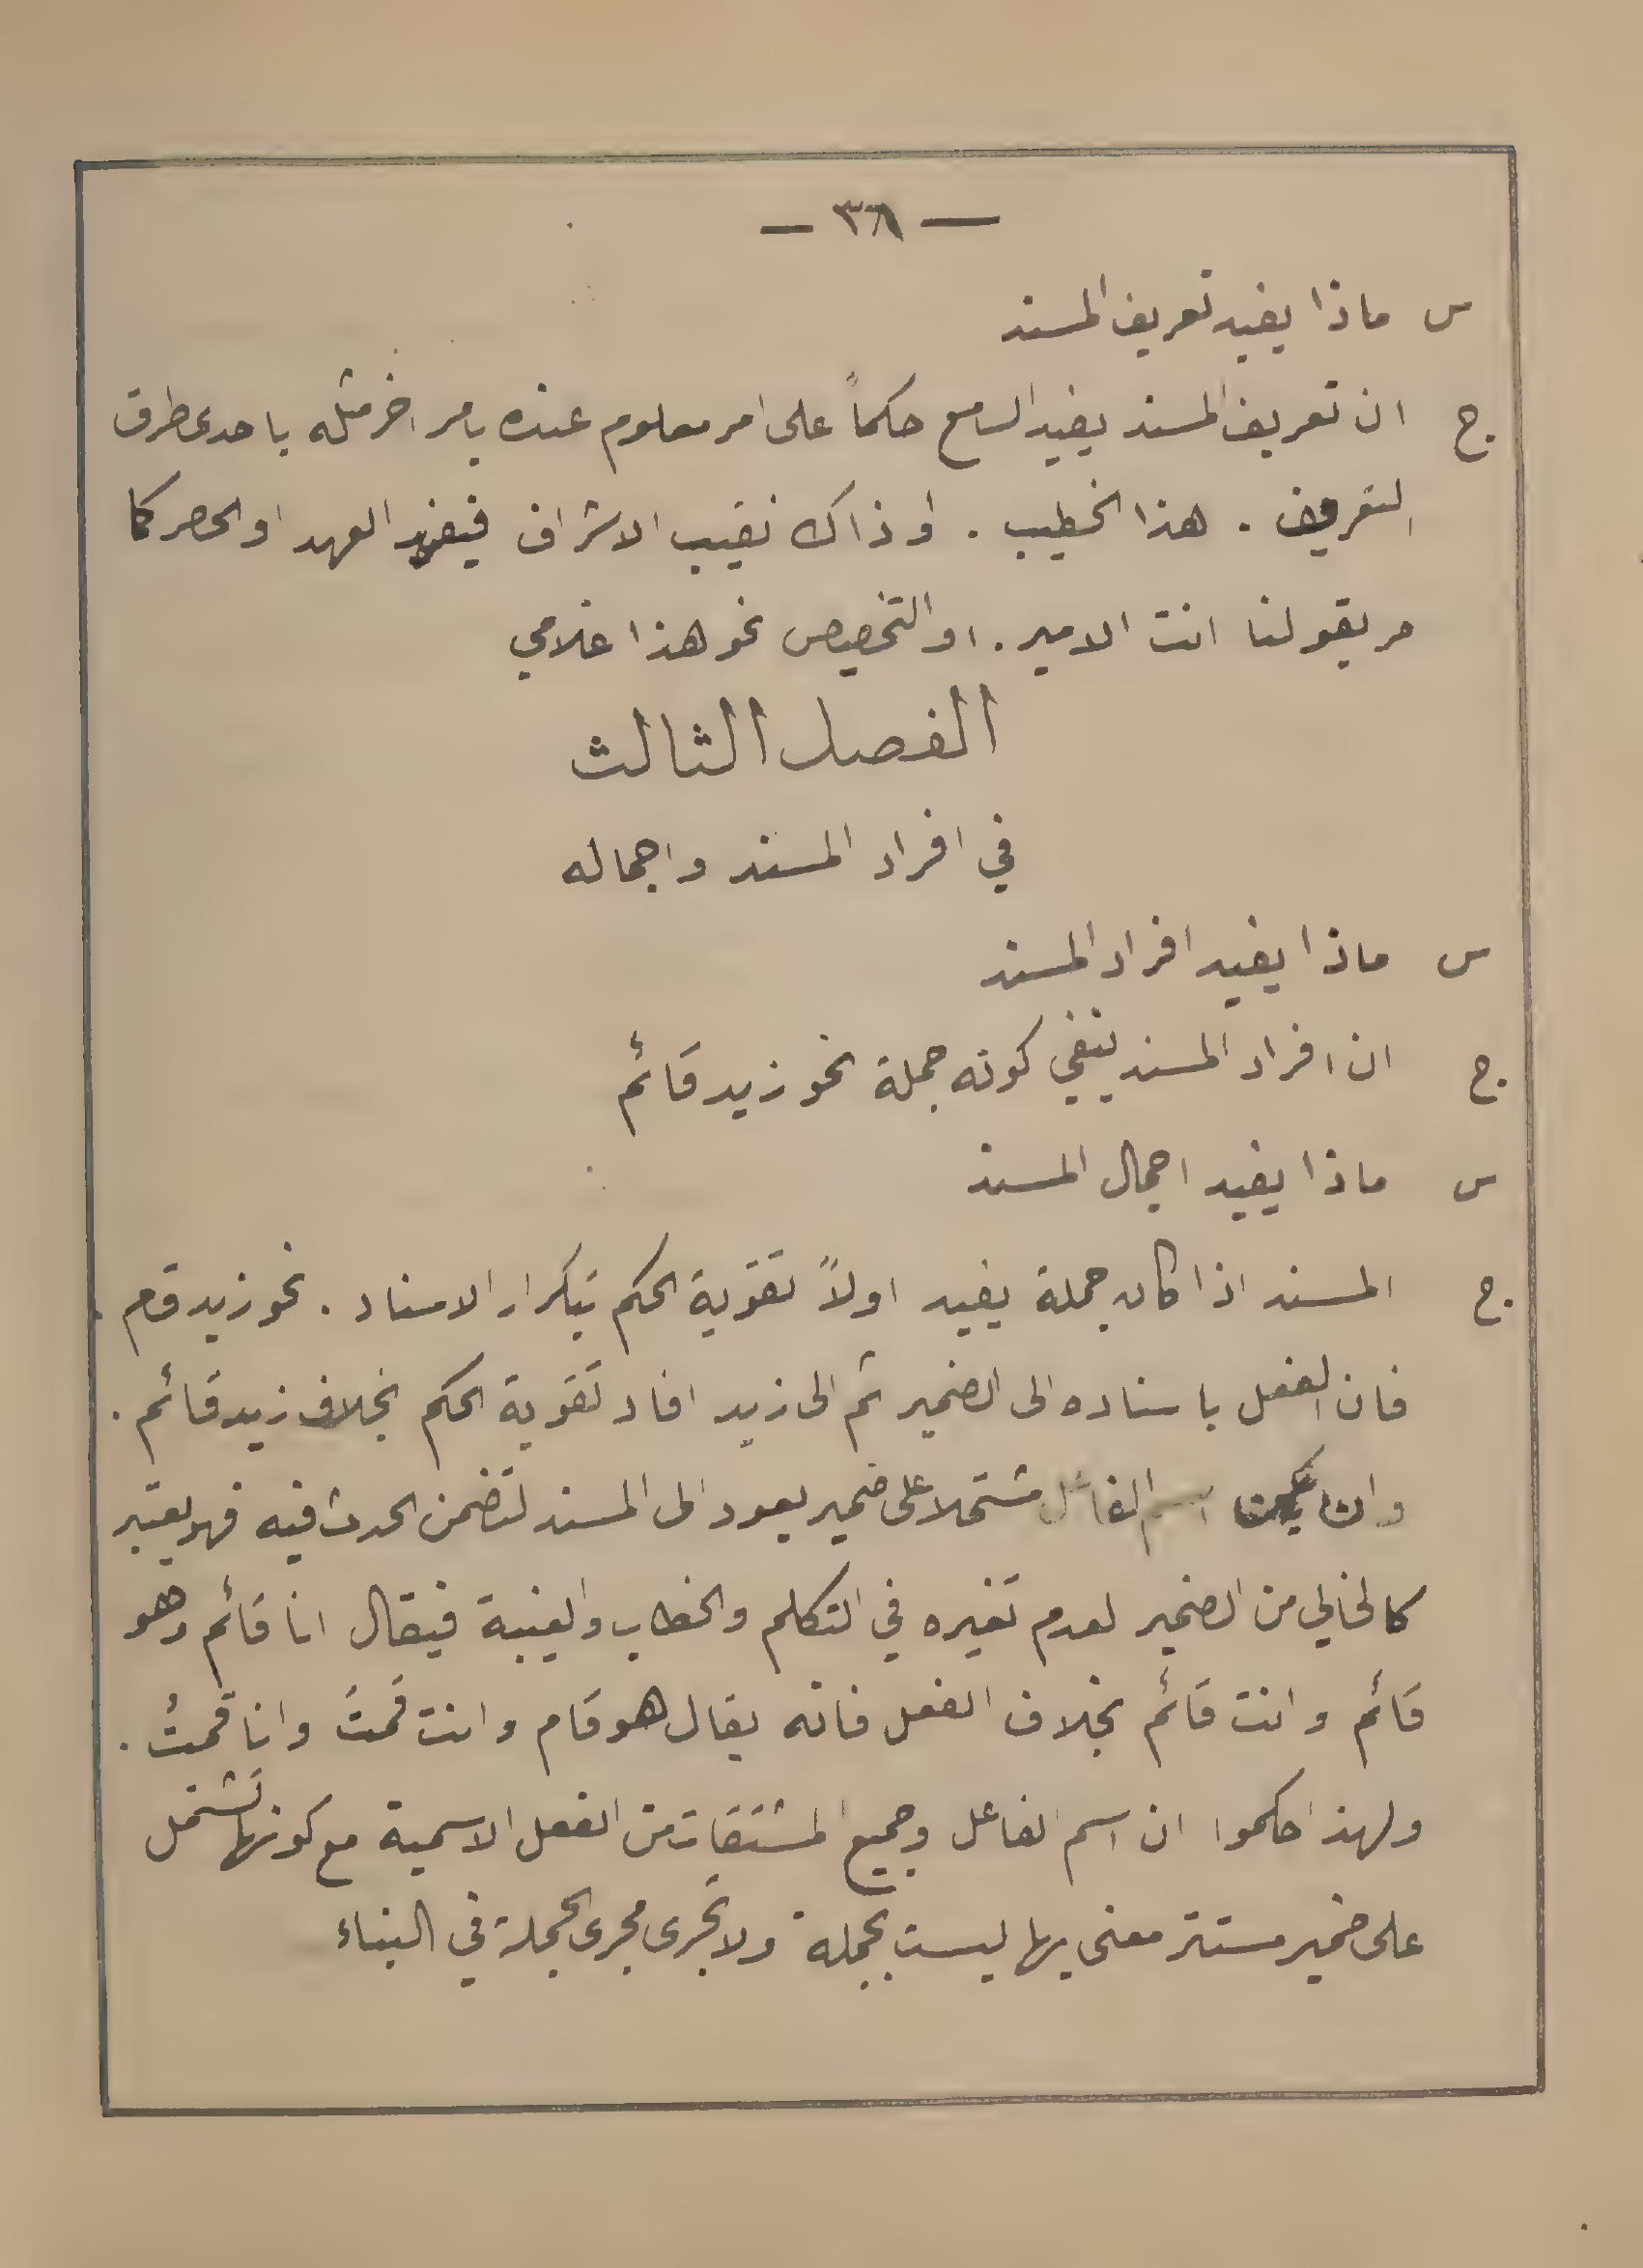 — ٣٨ —
س ماذا يفيد تعريف المسند
ج. ان تعريف المسند يفيد السامع حكماً على امر معلوم عنده بامر اخر مثله باحدى طرق
التعريف . هذا الخطيب . او ذاك نقيب الاشراف فيفيد العهد او الحصر كما
مر بقولنا انت الامير . او التخصيص نحو هذا غلامي
الفصل الثالث
في افراد المسند واجماله
س ماذا يفيد افراد المسند
ج. ان افراد المسند ينفي كونه جملة نحو زيد قائم
س ماذا يفيد اجمال المسند
ج. المسند اذا كان جملة يفيد اولاً تقوية الحكم بتكرار الاسناد . نحو زيد قام .
فان الفعل باسناده الى الضمير ثم الى زيد افاد تقوية الحكم بخلاف زيد قائم .
وان يكن اسم الفاعل مشتملا على ضمير يعود الى المسند لتضمن الحدث فيه فهو يعتبر
كالخالي من الضمير لعدم تغيره في التكلم والخطاب والغيبة فيقال انا قائم وهو
قائم وانت قائم بخلاف الفعل فانه يقال هو قام وانت قمتَ وانا قمتُ .
ولهذا حكموا ان اسم الفاعل وجميع المشتقات من الفعل الاسمية مع كونها تشتمل
على ضمير مستتر معنى بها ليست بجملة ولا تجرى مجرى الجملة في البناء